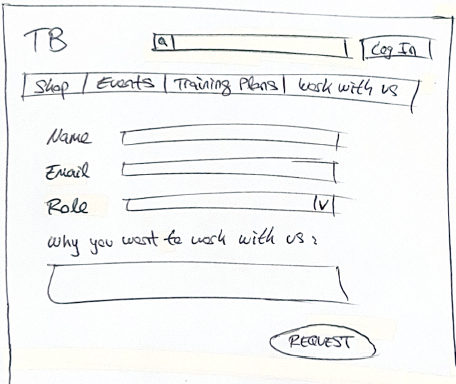 TB
Log In
Shop | Events | Training Plans | work with us
Name
Email
Role
why you want to work with us:
REQUEST